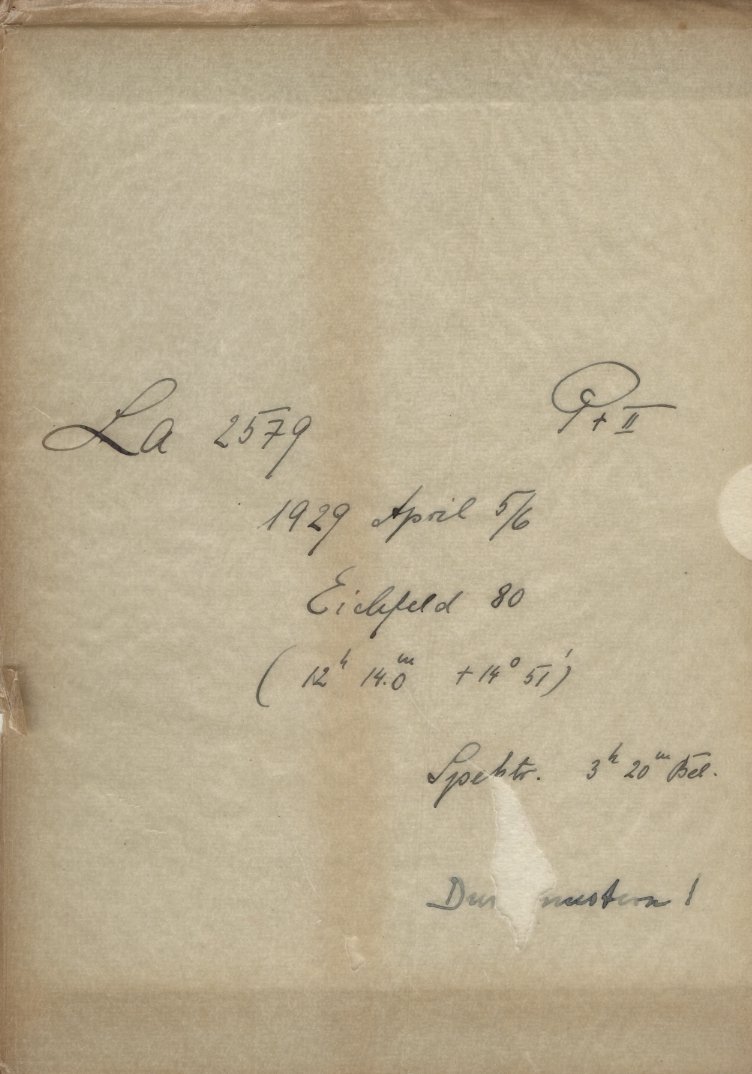 La 2579 P + II
1929 April 5/6
Eichfeld 80
( 12h 14.0m + 14° 51' )
Spektr. 3h 20m Bel.
!